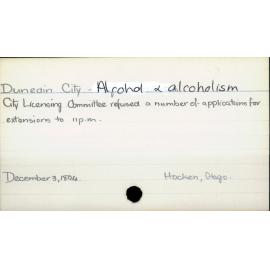 Dunedin City - Alcohol & alcoholism
City Licencing Committee refused a number of applications for
extensions to 11p.m.
December 3, 1894.
Hocken, Otago.